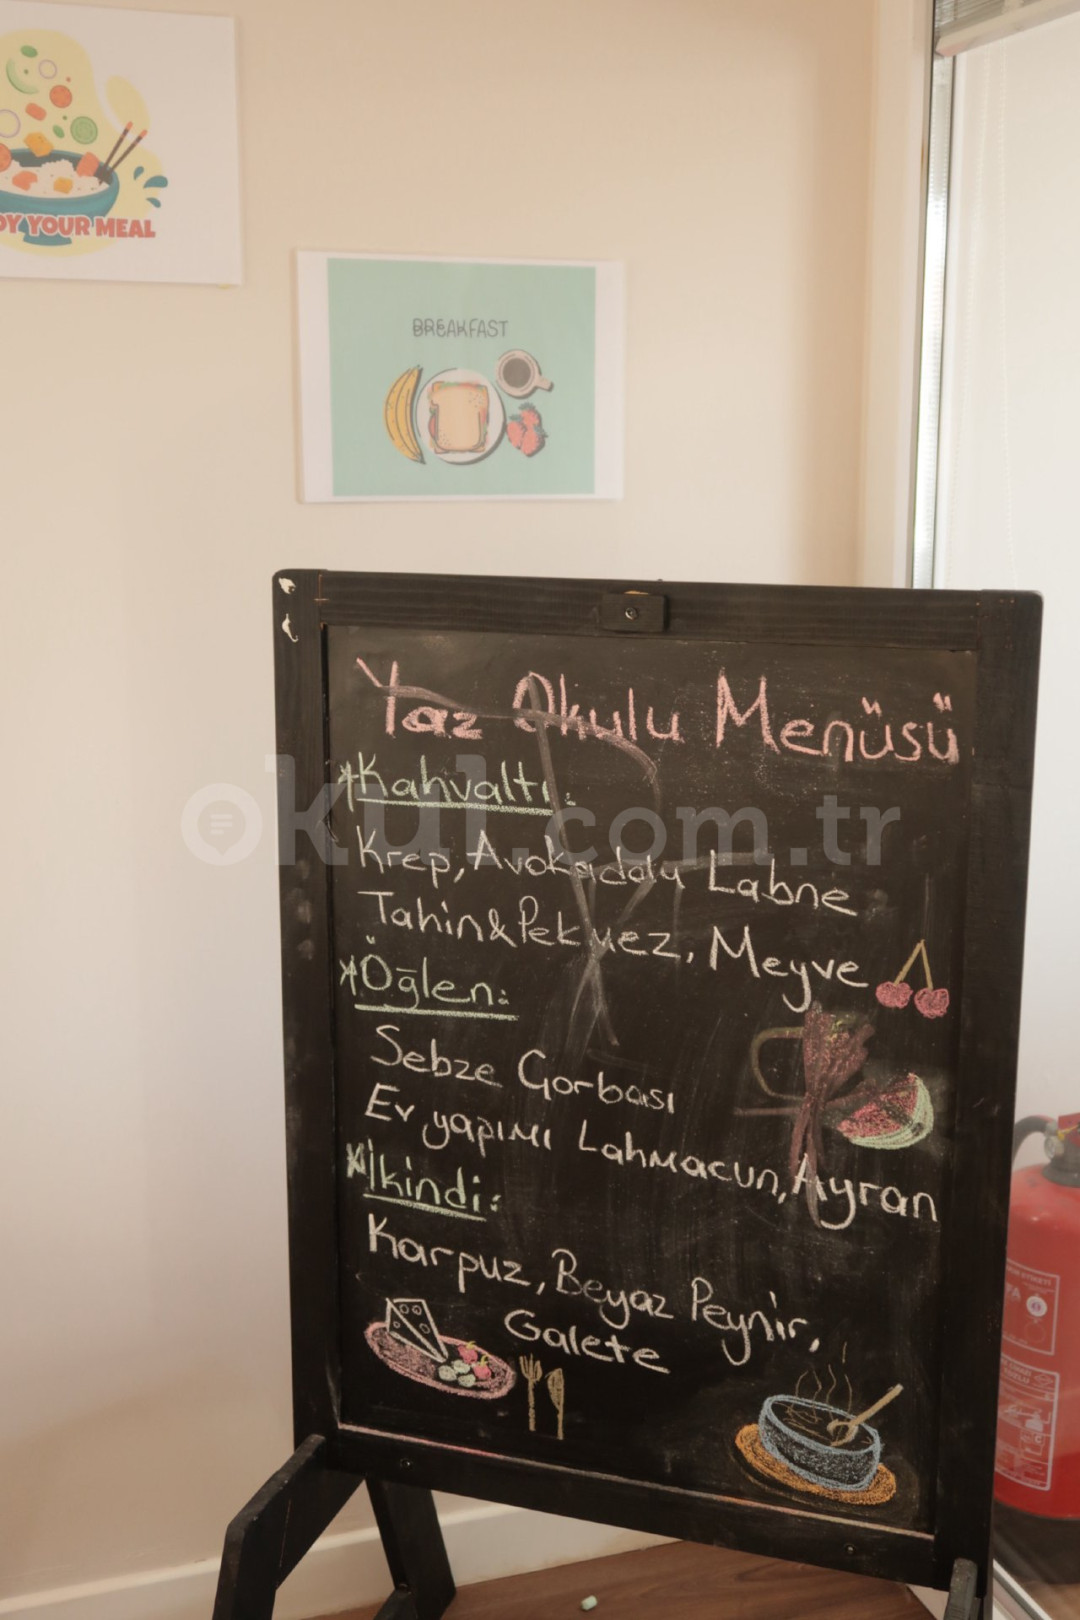 OY YOUR MEAL
BREAKFAST
Yaz Okulu Menüsü
*Kahvaltı:
Krep, Avokadolu Labne
Tahin&Pekmez, Meyve
*Öğlen:
Sebze Çorbası
Ev yapımı Lahmacun, Ayran
*İkindi:
Karpuz, Beyaz Peynir,
Galete
okul.com.tr